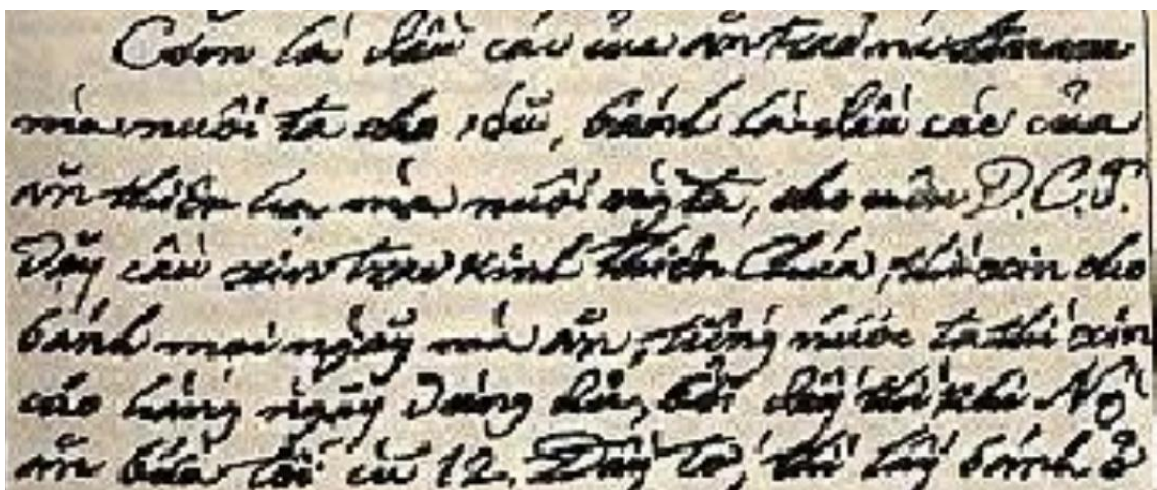 Cơm là đầu các của ăn trên nước Annam
mà nuôi ta cho sống, bánh là đầu các của
ăn thiên hạ mà nuôi người ta, cho nên D.C.J.
dạy câu xin trong kinh thiên Chúa, thì xin cho
bánh mọi ngày mà ăn, tiếng nước ta thì xin
cho hàng ngày dùng đủ, bởi đấy thì khi
ăn bữa tối cù 12. Đầy tớ, thì lấy bánh ở